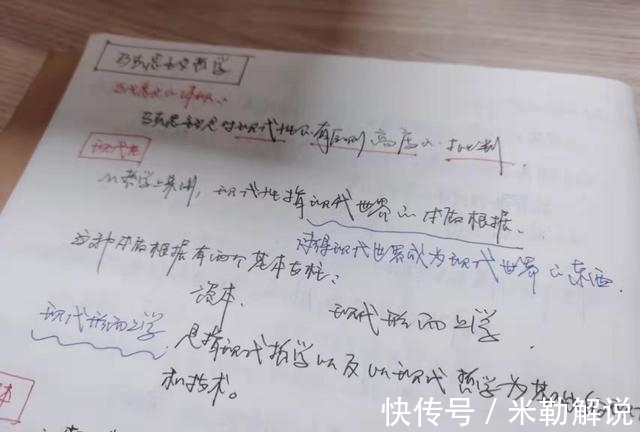 马克思主义哲学
马克思主义是对现代性的有原则高度的批判。
现代性
从哲学上来讲，现代性指现代世界的本质根据。
使得现代世界成为现代世界的东西
这种本质根据有两个基本支柱：
资本、 现代形而上学
现代形而上学 是指现代哲学以及以现代哲学为
和技术。
本
快传号/米勒解说